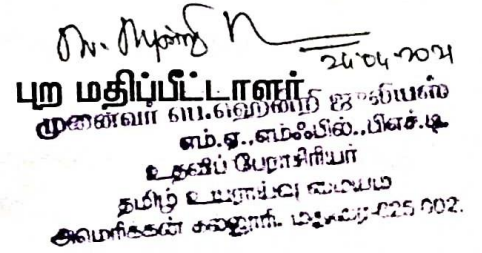 24-04-2021
புற மதிப்பீட்டாளர்
முனைவர் பெ.ஹென்றி ஜூலியஸ்
எம்.ஏ.,எம்ஃபில்.,பிஎச்.டி
உதவிப் பேராசிரியர்
தமிழ் உயராய்வு மையம்
அமெரிக்கன் கல்லூரி. மதுரை-625 002.